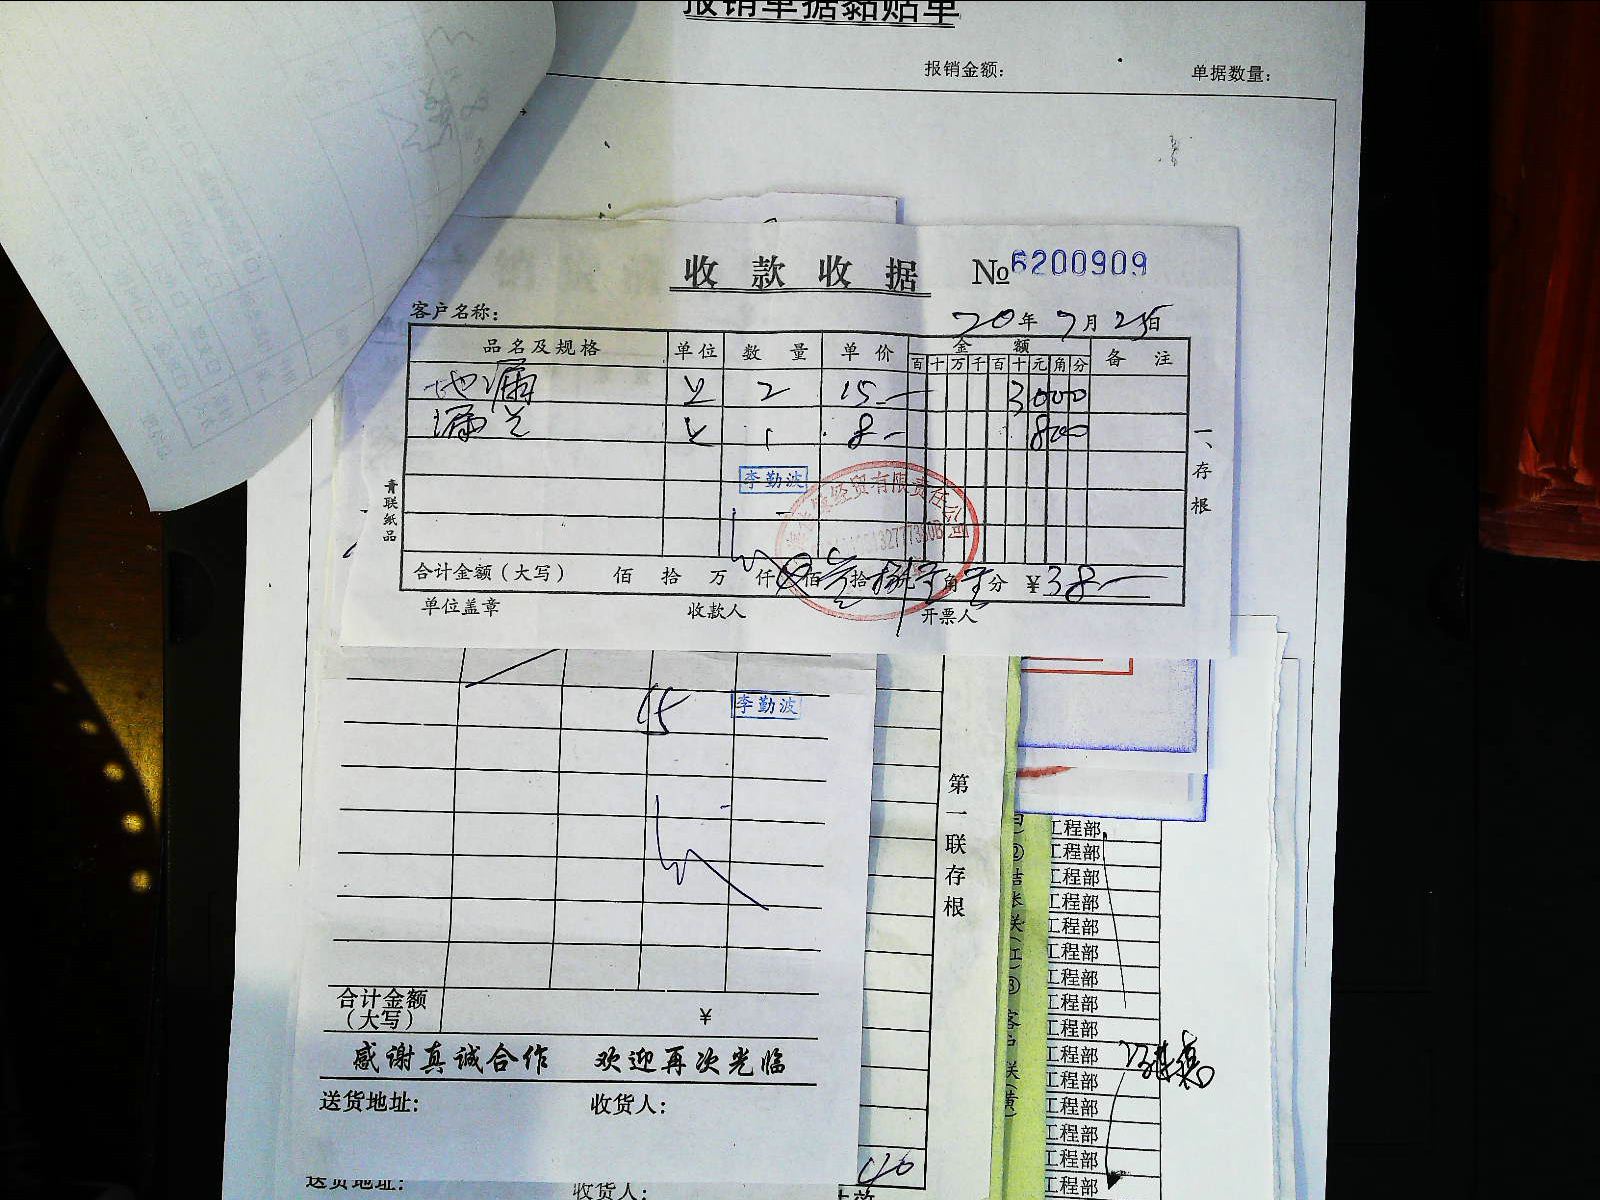 报销单据黏贴单
报销金额： 单据数量：
收款收据 № 6200909
客户名称： 20年7月25日
品名及规格 单位 数量 单价 金额 备注
百十万千百十元角分
地漏 2 15— 3000
漏 1 8— 800
李勤波
经贸有限责任公司
合计金额（大写） 佰 拾 万 仟 佰 叁拾捌 零角零分 ¥38—
单位盖章 收款人 开票人
一、存根
青联纸品
55 李勤波
合计金额
（大写） ¥
感谢真诚合作 欢迎再次光临
送货地址： 收货人：
送货地址： 收货人：
第一联存根
工程部
工程部
工程部
工程部
工程部
工程部
工程部
工程部
工程部
工程部
工程部
工程部
工程部
工程部
工程部